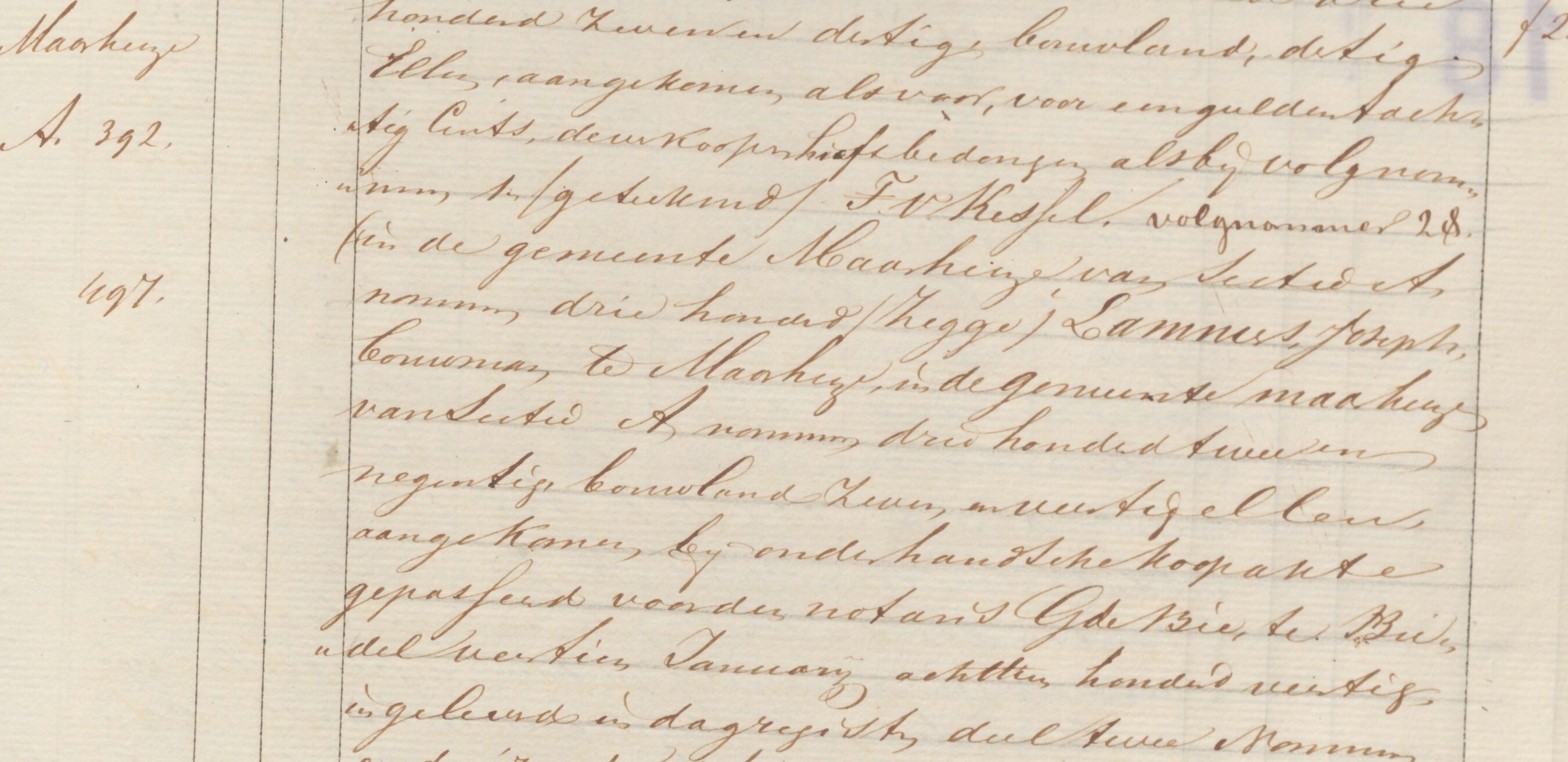 Maarheeze
A. 392.
497.
honderd zevenen dertig, bouwland, dertig
Ellen, aangekomen als voor, voor een gulden tach„
„tig Cents, de verkooper heeft bedongen als bij volgnom„
„mer, 1. /getekend/ F. V. Kessel. volgnommer 28.
(in de gemeente Maarheeze van Sectie A,
nommer, drie honderd / Zegge / Lammers, Joseph,
bouwman, te Maarheeze, in de gemeente maarheeze
van Sectie A, nommer, drie honderd twee en
negentig, bouwland zeven en veertig ellen,
aangekomen, bij onderhandsche koopakte
gepasseerd voor den notaris G de Bie, te Bu„
„del veertien January achttien honderd veertig
ingeleverd in dagregister, deel twee Nommer